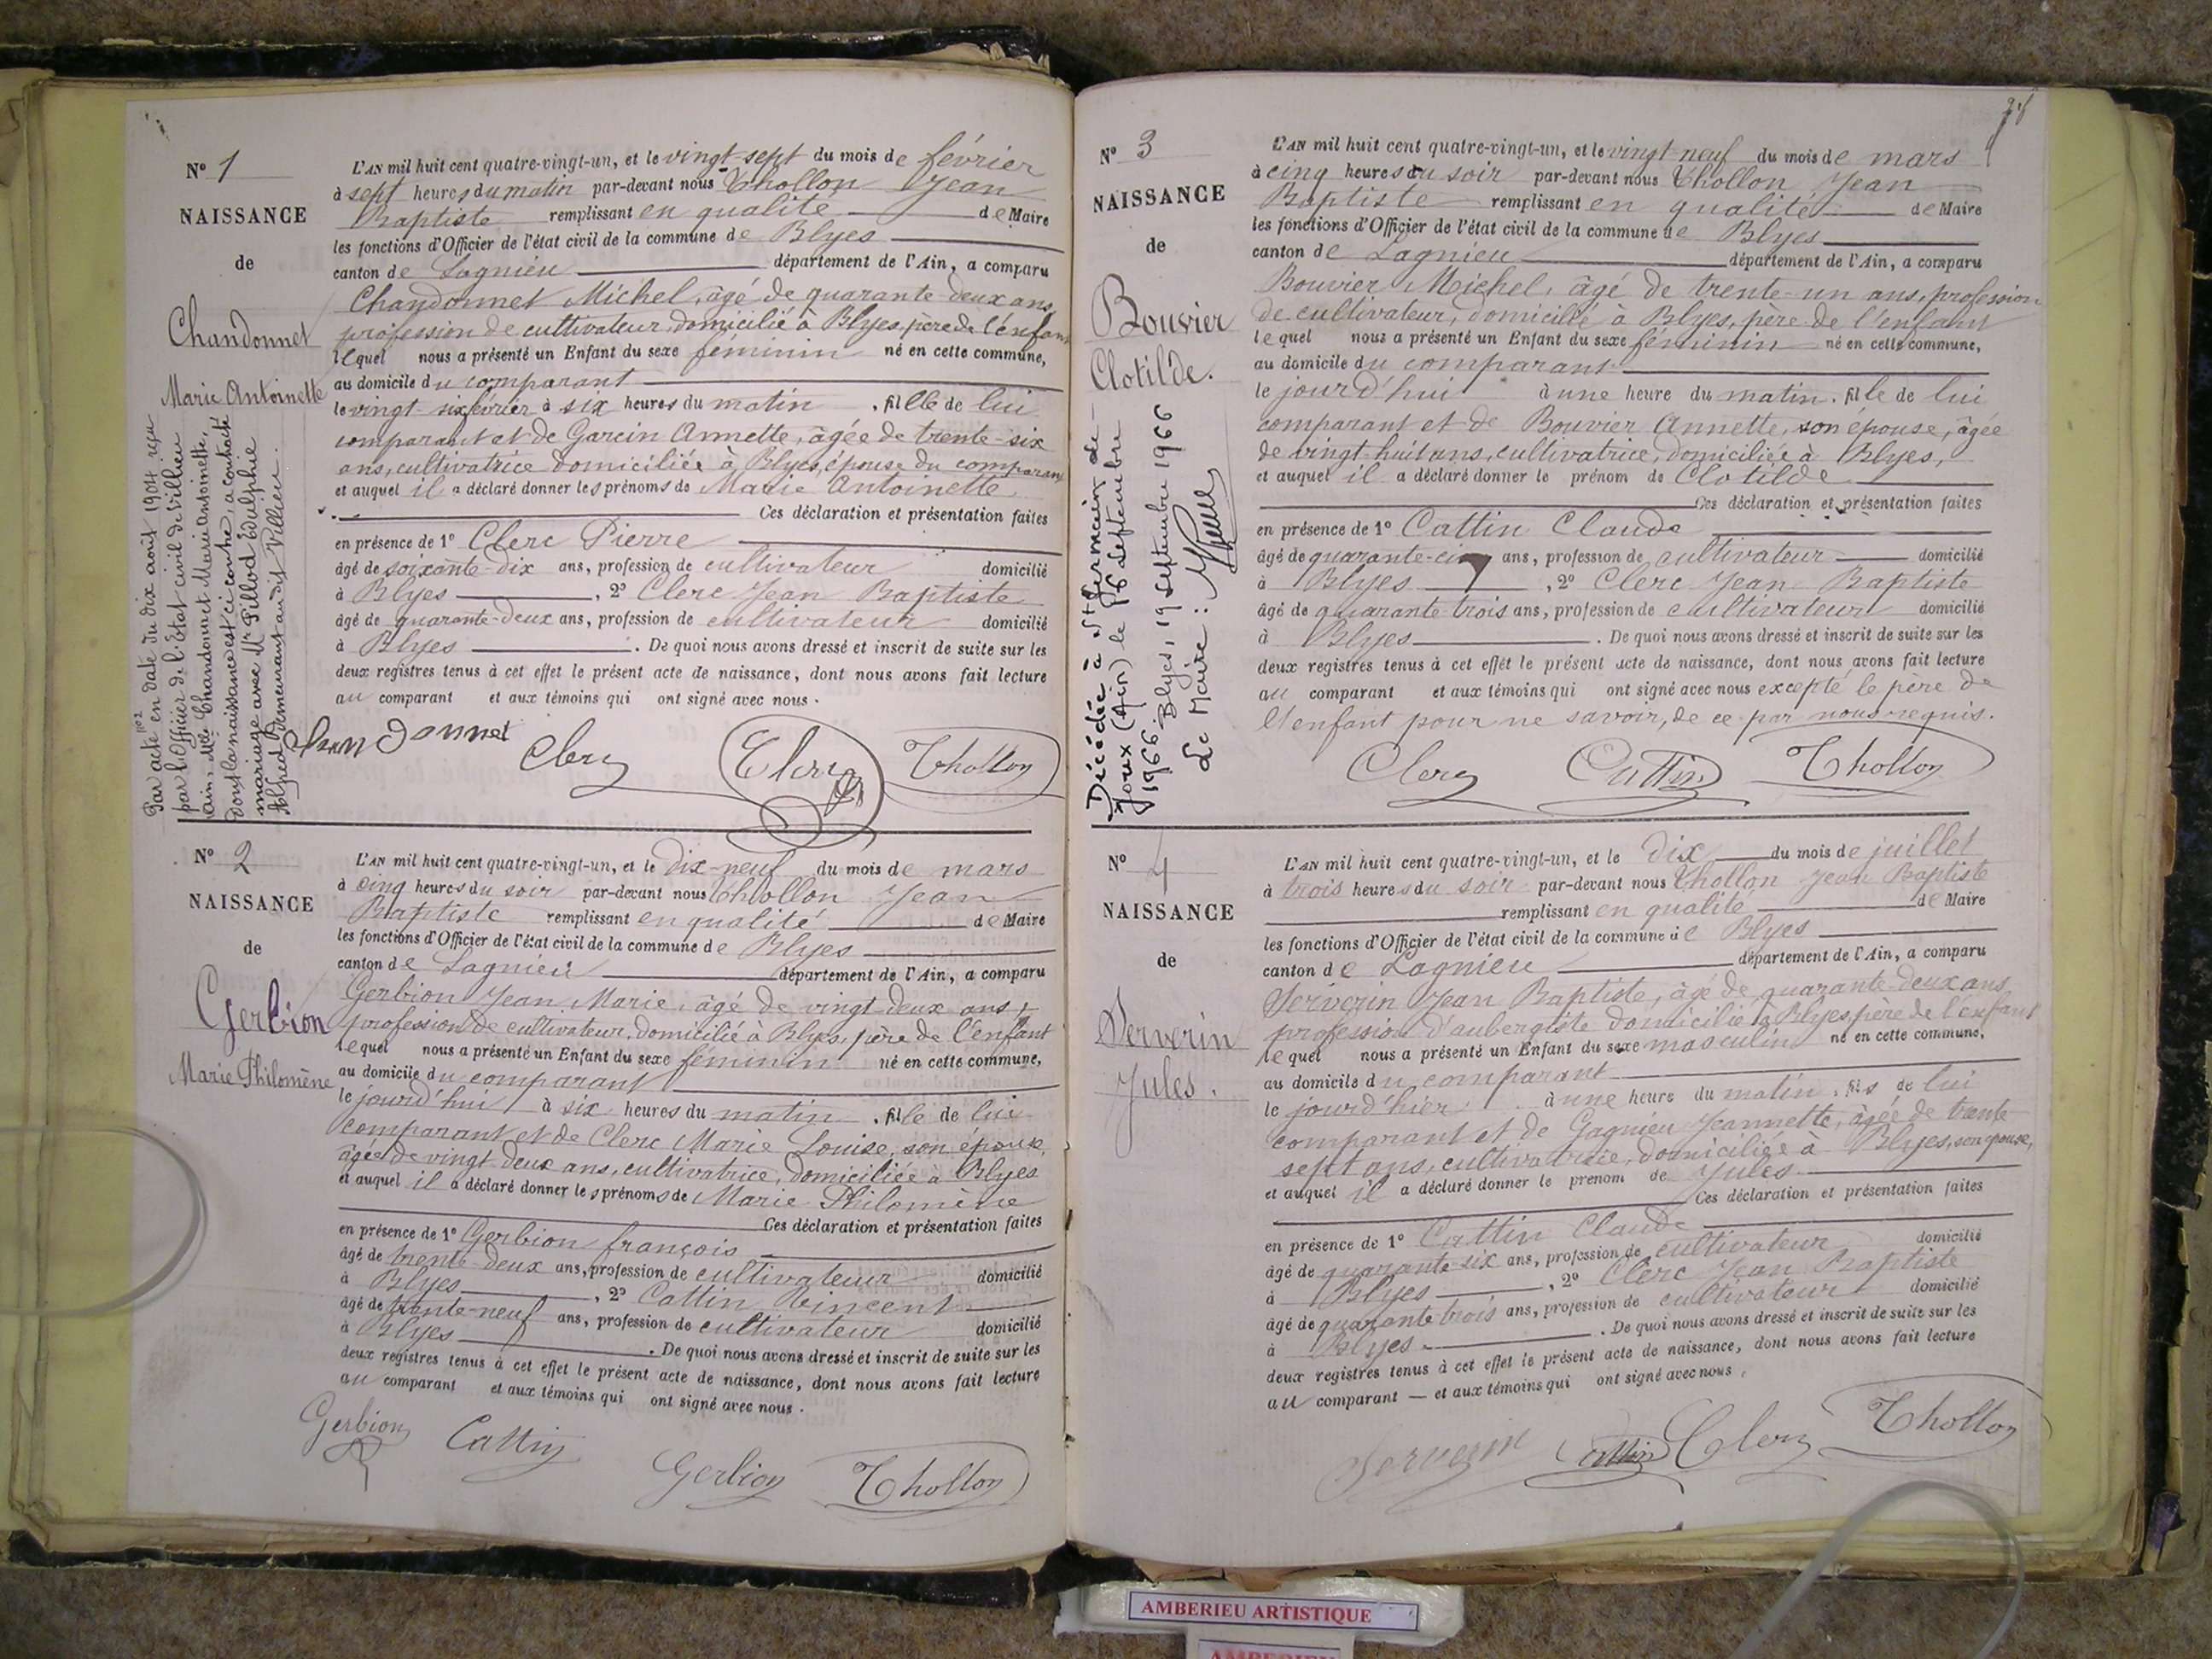 Nº 1
NAISSANCE
de
Chandonnet
Marie Antoinette
Par acte en date du dix août 1904 reçu
par l'Officier de l'Etat civil de Villieu
Ain, Melle Chandonnet Marie Antoinette,
dont la naissance est ci contre, a contracté
mariage avec Mr Pillod
Alfred demeurant au dit Villieu.
L'AN mil huit cent quatre-vingt-un, et le vingt-sept du mois de février
à sept heures du matin par-devant nous Thollon Jean
Baptiste remplissant en qualité de Maire
les fonctions d'Officier de l'état civil de la commune de Blyes
canton de Lagnieu département de l'Ain, a comparu
Chandonnet Michel, âgé de quarante-deux ans,
profession de cultivateur, domicilié à Blyes, père de l'enfant
lequel nous a présenté un Enfant du sexe féminin né en cette commune,
au domicile du comparant
le vingt-six février à six heures du matin, fille de lui
comparant et de Garcin Annette, âgée de trente-six
ans, cultivatrice domiciliée à Blyes, épouse du comparant
et auquel il a déclaré donner les prénoms de Marie Antoinette
Ces déclaration et présentation faites
en présence de 1º Clerc Pierre
âgé de soixante-dix ans, profession de cultivateur domicilié
à Blyes, 2º Clerc Jean Baptiste
âgé de quarante-deux ans, profession de cultivateur domicilié
à Blyes. De quoi nous avons dressé et inscrit de suite sur les
deux registres tenus à cet effet le présent acte de naissance, dont nous avons fait lecture
au comparant et aux témoins qui ont signé avec nous.
Chandonnet Clerc Clerc Thollon
Nº 2
NAISSANCE
de
Gerbion
Marie Philomène
L'AN mil huit cent quatre-vingt-un, et le dix-neuf du mois de mars
à cinq heures du soir par-devant nous Thollon Jean
Baptiste remplissant en qualité de Maire
les fonctions d'Officier de l'état civil de la commune de Blyes
canton de Lagnieu département de l'Ain, a comparu
Gerbion Jean Marie, âgé de vingt-deux ans,
profession de cultivateur, domicilié à Blyes, père de l'enfant
lequel nous a présenté un Enfant du sexe féminin né en cette commune,
au domicile du comparant
le jourd'hui à six heures du matin, fille de lui
comparant et de Clerc Marie Louise, son épouse,
âgée de vingt-deux ans, cultivatrice, domiciliée à Blyes
et auquel il a déclaré donner les prénoms de Marie Philomène
Ces déclaration et présentation faites
en présence de 1º Gerbion françois
âgé de trente-deux ans, profession de cultivateur domicilié
à Blyes, 2º Cattin Vincent
âgé de trente-neuf ans, profession de cultivateur domicilié
à Blyes. De quoi nous avons dressé et inscrit de suite sur les
deux registres tenus à cet effet le présent acte de naissance, dont nous avons fait lecture
au comparant et aux témoins qui ont signé avec nous.
Gerbion Cattin Gerbion Thollon
Nº 3
NAISSANCE
de
Bouvier
Clotilde.
Décédée à St Germain de
Joux (Ain) le 16 Septembre
1966. Blyes, 19 septembre 1966
Le Maire :
L'AN mil huit cent quatre-vingt-un, et le vingt-neuf du mois de mars
à cinq heures du soir par-devant nous Thollon Jean
Baptiste remplissant en qualité de Maire
les fonctions d'Officier de l'état civil de la commune de Blyes
canton de Lagnieu département de l'Ain, a comparu
Bouvier Michel, âgé de trente-un ans, profession
de cultivateur, domicilié à Blyes, père de l'enfant
lequel nous a présenté un Enfant du sexe féminin né en cette commune,
au domicile du comparant
le jourd'hui à une heure du matin, fille de lui
comparant et de Bouvier Annette, son épouse, âgée
de vingt-huit ans, cultivatrice, domiciliée à Blyes,
et auquel il a déclaré donner le prénom de Clotilde
Ces déclaration et présentation faites
en présence de 1º Cattin Claude
âgé de quarante-cinq ans, profession de cultivateur domicilié
à Blyes, 2º Clerc Jean Baptiste
âgé de quarante-trois ans, profession de cultivateur domicilié
à Blyes. De quoi nous avons dressé et inscrit de suite sur les
deux registres tenus à cet effet le présent acte de naissance, dont nous avons fait lecture
au comparant et aux témoins qui ont signé avec nous excepté le père de
l'enfant pour ne savoir, de ce par nous requis.
Clerc Cattin Thollon
Nº 4
NAISSANCE
de
Serverin
Jules.
L'AN mil huit cent quatre-vingt-un, et le dix du mois de juillet
à trois heures du soir par-devant nous Thollon Jean Baptiste
remplissant en qualité de Maire
les fonctions d'Officier de l'état civil de la commune de Blyes
canton de Lagnieu département de l'Ain, a comparu
Serverin Jean Baptiste, âgé de quarante-deux ans,
profession d'aubergiste domicilié à Blyes, père de l'enfant
lequel nous a présenté un Enfant du sexe masculin né en cette commune,
au domicile du comparant
le jourd'hier à une heure du matin, fils de lui
comparant et de Gagnieu Jeannette, âgée de trente
sept ans, cultivatrice, domiciliée à Blyes, son épouse,
et auquel il a déclaré donner le prénom de Jules
Ces déclaration et présentation faites
en présence de 1º Cattin Claude
âgé de quarante-six ans, profession de cultivateur domicilié
à Blyes, 2º Clerc Jean Baptiste
âgé de quarante trois ans, profession de cultivateur domicilié
à Blyes. De quoi nous avons dressé et inscrit de suite sur les
deux registres tenus à cet effet le présent acte de naissance, dont nous avons fait lecture
au comparant — et aux témoins qui ont signé avec nous.
Serverin Cattin Clerc Thollon
AMBERIEU ARTISTIQUE
AMBERIEU